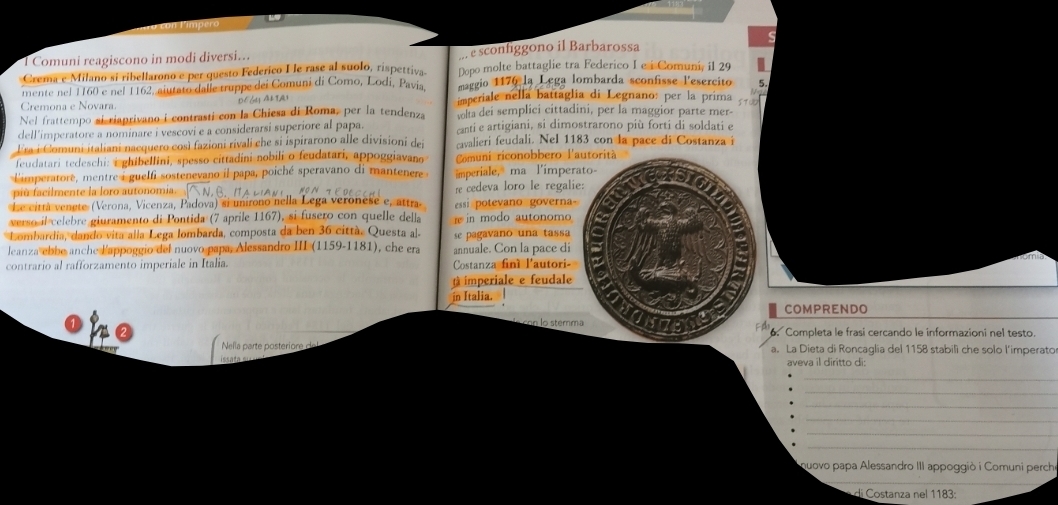 ntro con l'impero
I Comuni reagiscono in modi diversi...
Crema e Milano si ribellarono e per questo Federico I le rase al suolo, rispettiva-
mente nel 1160 e nel 1162, aiutato dalle truppe dei Comuni di Como, Lodi, Pavia,
Cremona e Novara.
Nel frattempo si riaprivano i contrasti con la Chiesa di Roma, per la tendenza
dell'imperatore a nominare i vescovi e a considerarsi superiore al papa.
Fra i Comuni italiani nacquero così fazioni rivali che si ispirarono alle divisioni dei
feudatari tedeschi: i ghibellini, spesso cittadini nobili o feudatari, appoggiavano
l'imperatore, mentre i guelfi sostenevano il papa, poiché speravano di mantenere
più facilmente la loro autonomia. N.B. ITALIANI, NON TEDESCHI
Le città venete (Verona, Vicenza, Padova) si unirono nella Lega veronese e, attra-
verso il celebre giuramento di Pontida (7 aprile 1167), si fusero con quelle della
Lombardia, dando vita alla Lega lombarda, composta da ben 36 città. Questa al-
leanza ebbe anche l'appoggio del nuovo papa, Alessandro III (1159-1181), che era
contrario al rafforzamento imperiale in Italia.
1
2
Nella parte posteriore del
issata su
... e sconfiggono il Barbarossa
Dopo molte battaglie tra Federico I e i Comuni, il 29
maggio 1176 la Lega lombarda sconfisse l'esercito
imperiale nella battaglia di Legnano: per la prima
volta dei semplici cittadini, per la maggior parte mer-
canti e artigiani, si dimostrarono più forti di soldati e
cavalieri feudali. Nel 1183 con la pace di Costanza i
Comuni riconobbero l'autorità
imperiale, ma l'imperato-
re cedeva loro le regalie:
essi potevano governa-
re in modo autonomo
se pagavano una tassa
annuale. Con la pace di
Costanza finì l'autori-
tà imperiale e feudale
in Italia. !
con lo stemma
5.
nomia.
COMPRENDO
6. Completa le frasi cercando le informazioni nel testo.
a. La Dieta di Roncaglia del 1158 stabilì che solo l'imperator
aveva il diritto di:
nuovo papa Alessandro III appoggiò i Comuni perché
di Costanza nel 1183: